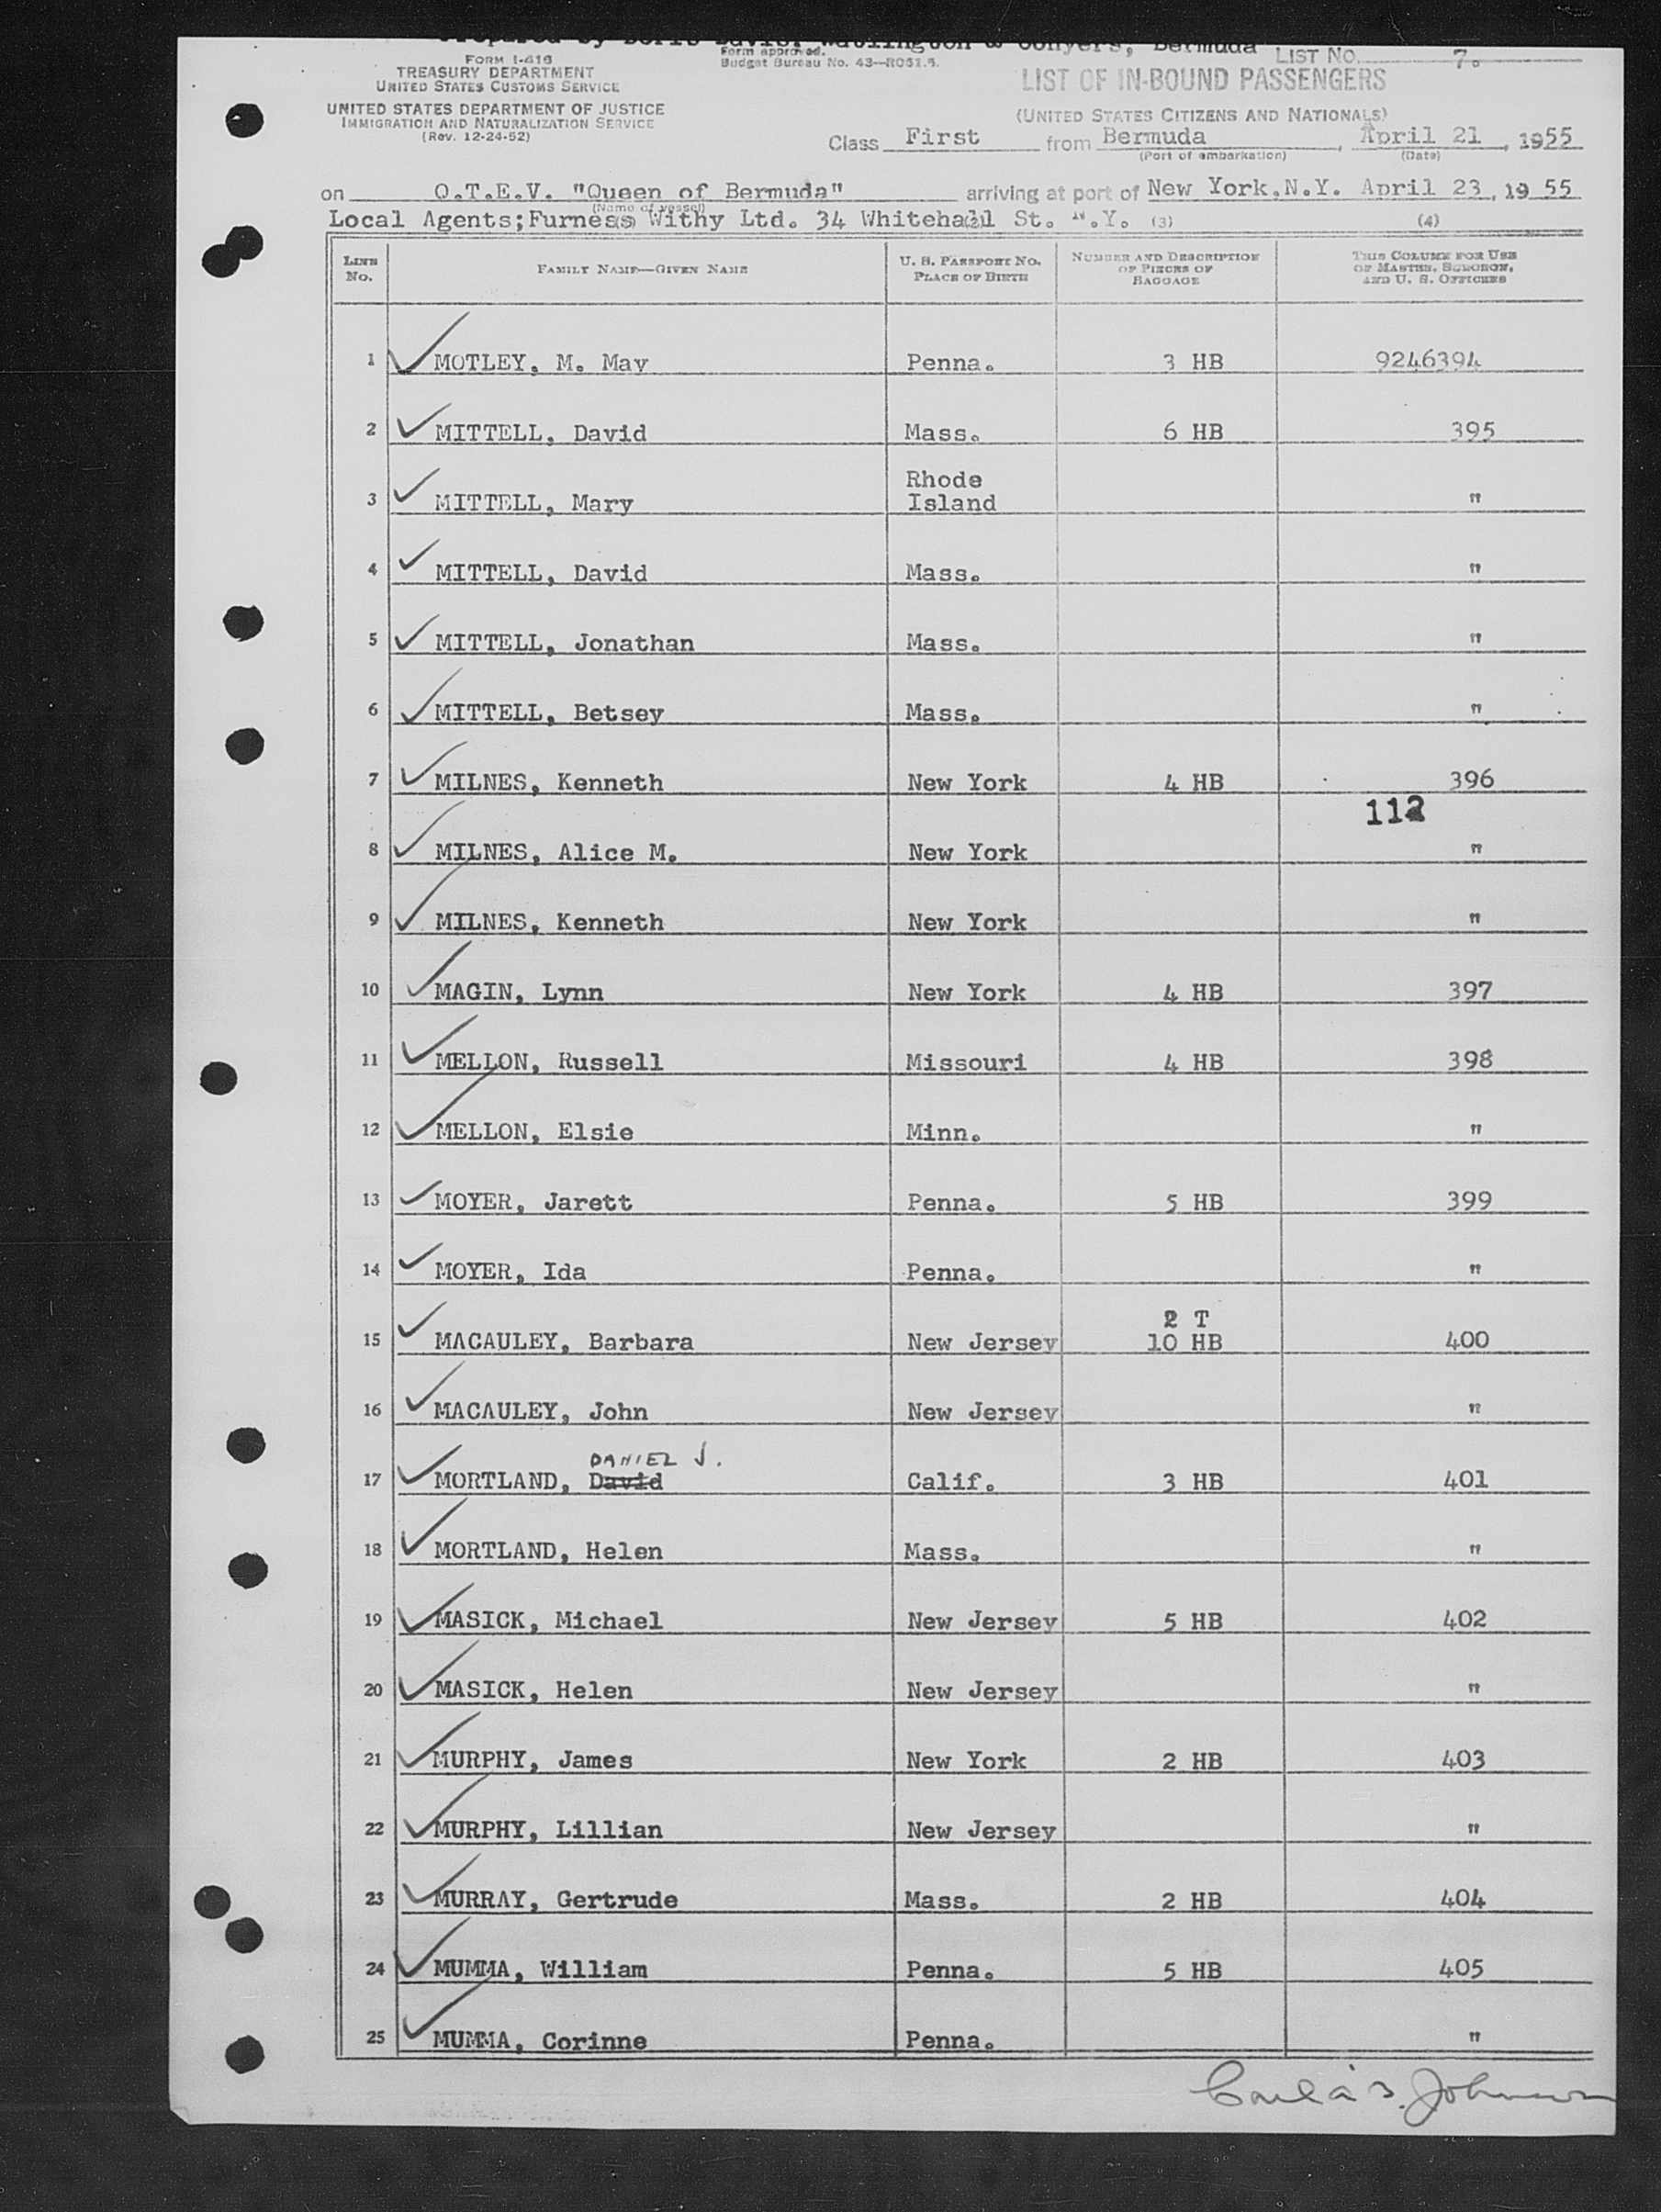 Prepared by Doris Davis, Watlington & Conyers, Bermuda
FORM I-416
TREASURY DEPARTMENT
UNITED STATES CUSTOMS SERVICE
UNITED STATES DEPARTMENT OF JUSTICE
IMMIGRATION AND NATURALIZATION SERVICE
(Rev. 12-24-52)
Form approved.
Budget Bureau No. 43—R051.5.
LIST NO. 7.
LIST OF IN-BOUND PASSENGERS
(UNITED STATES CITIZENS AND NATIONALS)
Class First from Bermuda, April 21, 1955
(Port of embarkation) (Date)
on Q.T.E.V. "Queen of Bermuda" arriving at port of New York.N.Y. April 23, 1955
(Name of vessel)
Local Agents;Furness Withy Ltd. 34 Whitehall St. N.Y. (3) (4)
LINE No. FAMILY NAME—GIVEN NAME U. S. PASSPORT NO. PLACE OF BIRTH NUMBER AND DESCRIPTION OF PIECES OF BAGGAGE THIS COLUMN FOR USE OF MASTER, SURGEON, AND U. S. OFFICERS
1 MOTLEY, M. May Penna. 3 HB 9246394
2 MITTELL, David Mass. 6 HB 395
3 MITTELL, Mary Rhode Island "
4 MITTELL, David Mass. "
5 MITTELL, Jonathan Mass. "
6 MITTELL, Betsey Mass. "
7 MILNES, Kenneth New York 4 HB 396
112
8 MILNES, Alice M. New York "
9 MILNES, Kenneth New York "
10 MAGIN, Lynn New York 4 HB 397
11 MELLON, Russell Missouri 4 HB 398
12 MELLON, Elsie Minn. "
13 MOYER, Jarett Penna. 5 HB 399
14 MOYER, Ida Penna. "
2 T
15 MACAULEY, Barbara New Jersey 10 HB 400
16 MACAULEY, John New Jersey "
DANIEL J.
17 MORTLAND, David Calif. 3 HB 401
18 MORTLAND, Helen Mass. "
19 MASICK, Michael New Jersey 5 HB 402
20 MASICK, Helen New Jersey "
21 MURPHY, James New York 2 HB 403
22 MURPHY, Lillian New Jersey "
23 MURRAY, Gertrude Mass. 2 HB 404
24 MUMMA, William Penna. 5 HB 405
25 MUMMA, Corinne Penna. "
Johnson